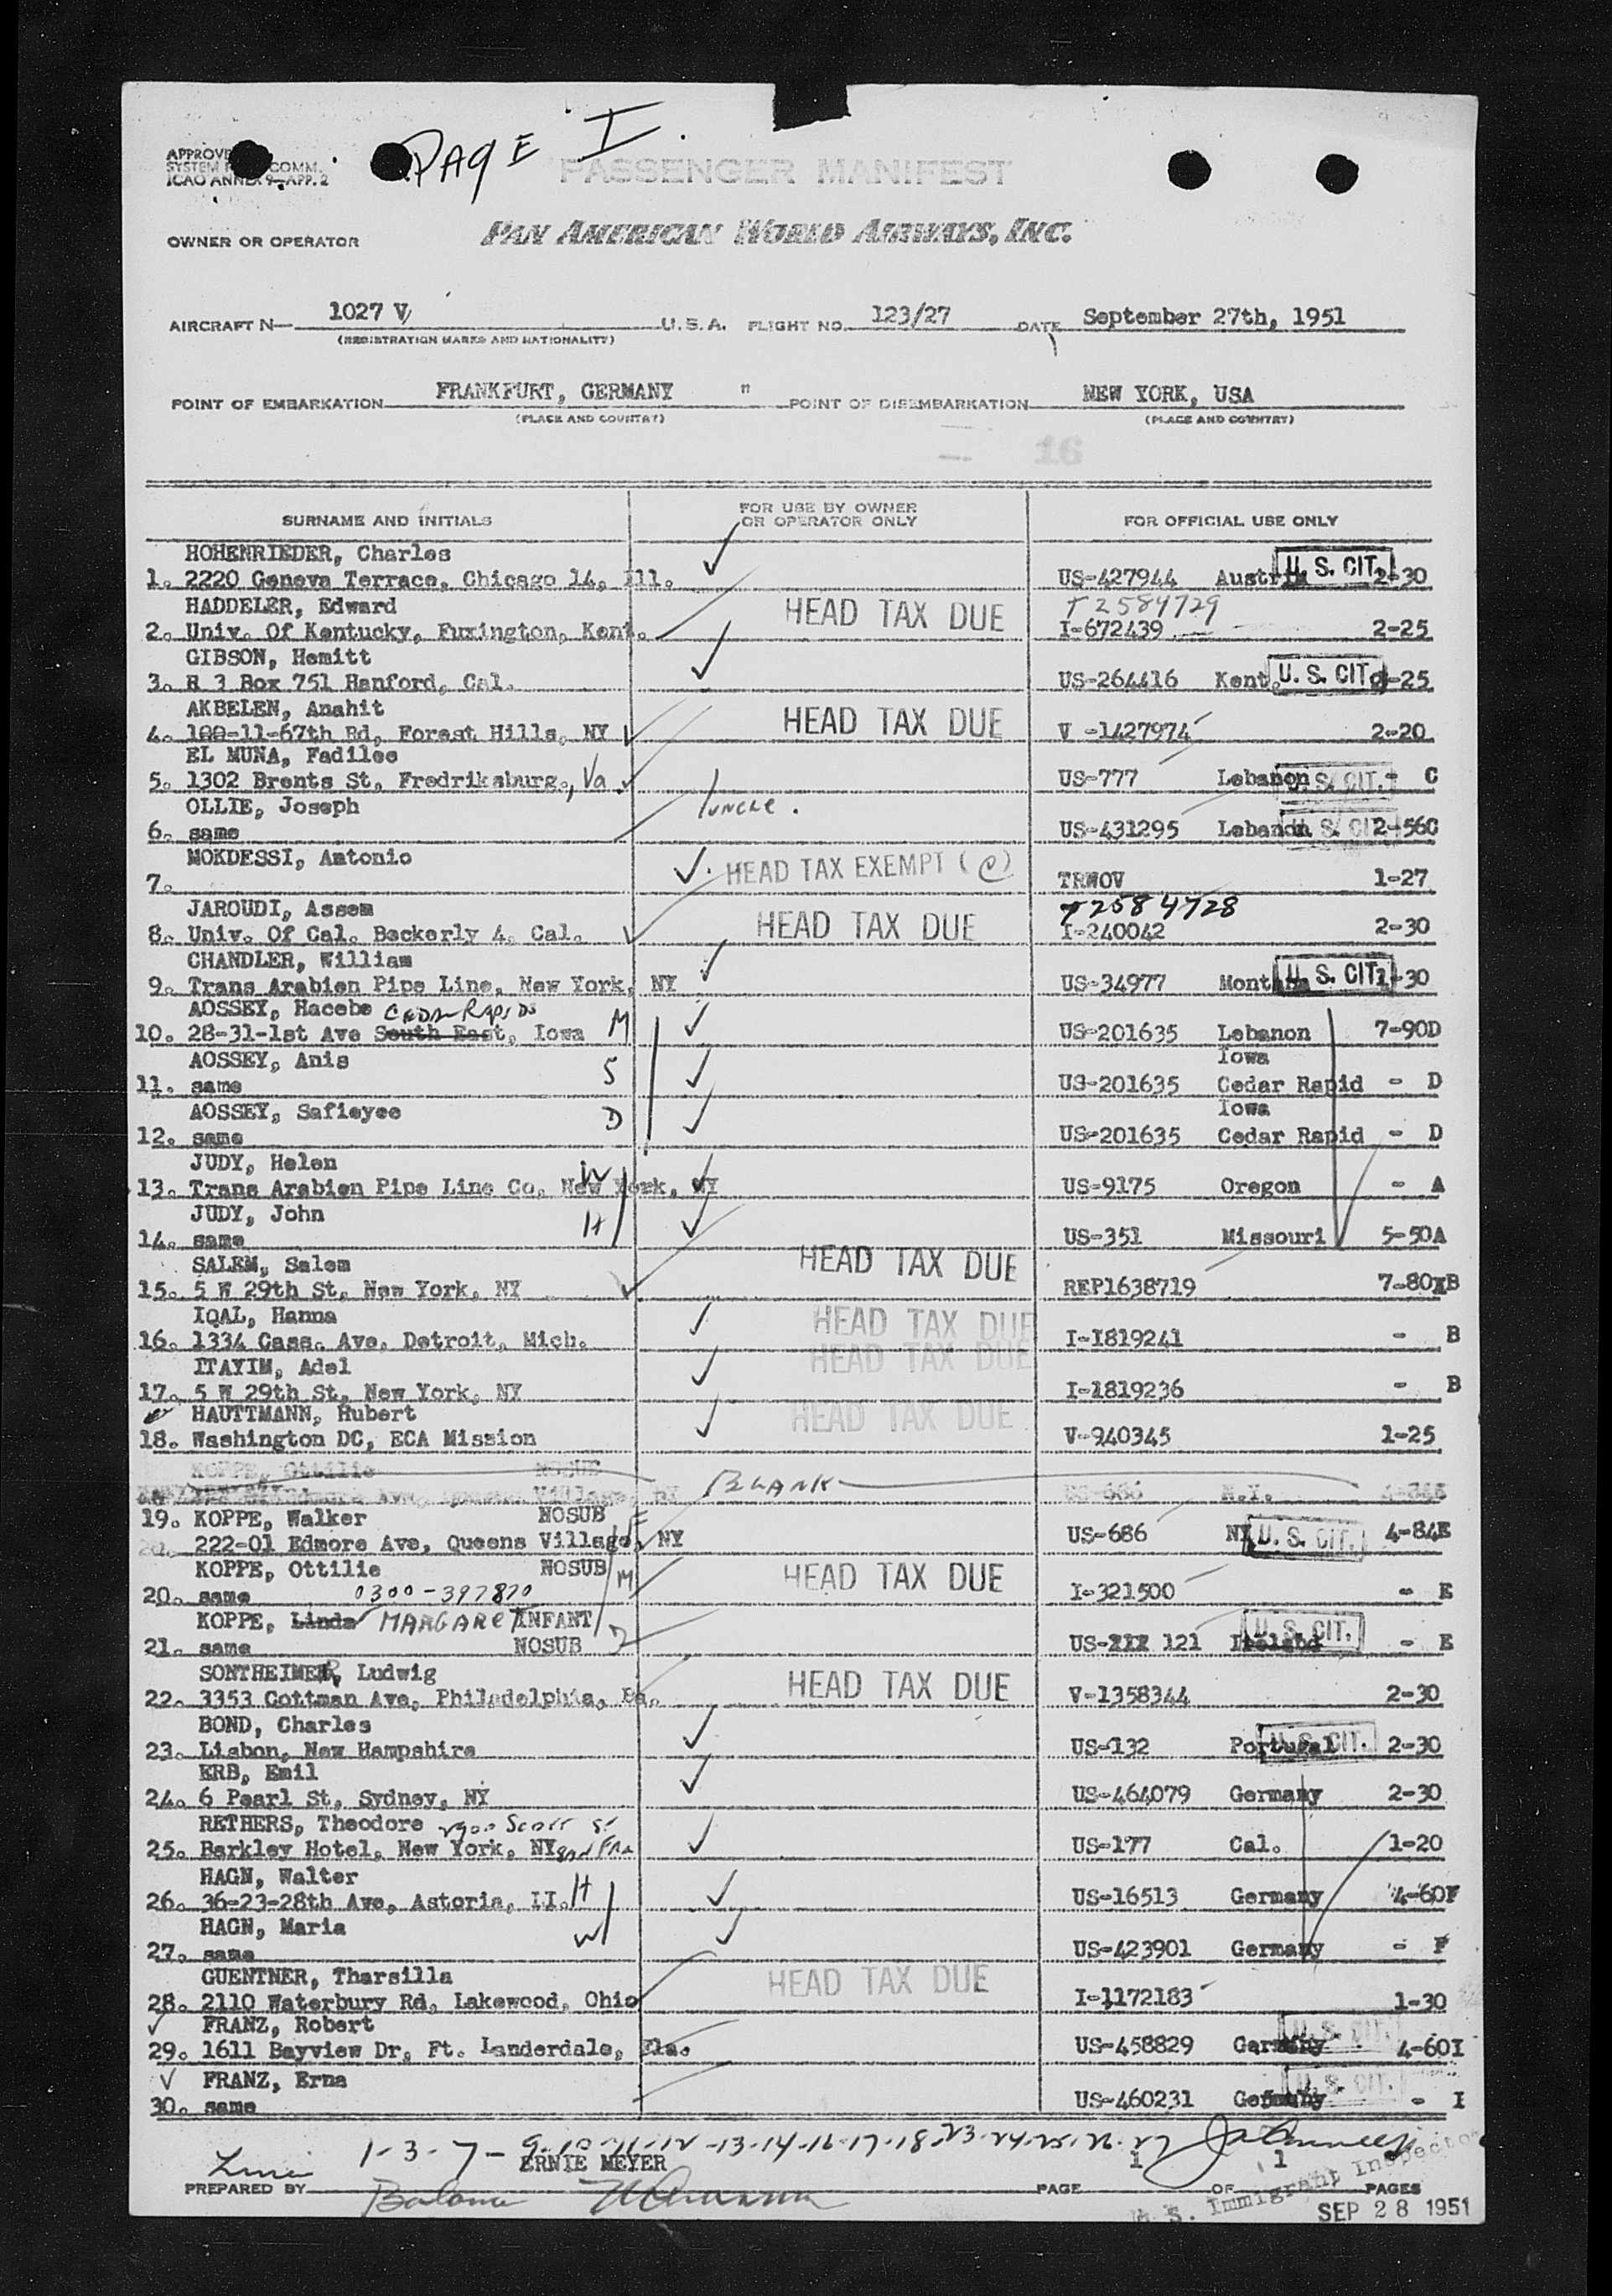 PAGE I.
APPROVE
SYSTEM COMM.
ICAO ANNEX 9—APP. 2
PASSENGER MANIFEST
OWNER OR OPERATOR PAN AMERICAN WORLD AIRWAYS, INC.
AIRCRAFT N— 1027 V U. S. A. FLIGHT NO. 123/27 DATE September 27th, 1951
(REGISTRATION MARKS AND NATIONALITY)
POINT OF EMBARKATION FRANKFURT, GERMANY " POINT OF DISEMBARKATION NEW YORK, USA
(PLACE AND COUNTRY) (PLACE AND COUNTRY)
16
SURNAME AND INITIALS FOR USE BY OWNER OR OPERATOR ONLY FOR OFFICIAL USE ONLY
HOHENRIEDER, Charles
1. 2220 Geneva Terrace, Chicago 14, Ill. US-427944 Austria U. S. CIT. 2-30
HADDELER, Edward HEAD TAX DUE T2584729
2. Univ. Of Kentucky, Fuxington, Kent. I-672439 2-25
GIBSON, Hemitt
3. R 3 Box 751 Hanford, Cal. US-264416 Kent. U. S. CIT. -25
AKBELEN, Anahit HEAD TAX DUE
4. 100-11-67th Rd, Forest Hills, NY V -1427974 2-20
EL MUNA, Fadilee
5. 1302 Brents St, Fredriksburg., Va. US-777 Lebanon U. S. CIT. - C
OLLIE, Joseph UNCLE.
6. same US-431295 Lebanon U. S. CIT. 2-56C
MOKDESSI, Antonio HEAD TAX EXEMPT (C)
7. TRWOV 1-27
JAROUDI, Assem HEAD TAX DUE T2584728
8. Univ. Of Cal. Beckerly 4, Cal. I-240042 2-30
CHANDLER, William
9. Trans Arabien Pipe Line, New York, NY US-34977 Montana U. S. CIT. 1-30
AOSSEY, Hacebe CEDAR RAPIDS
10. 28-31-1st Ave South East, Iowa M US-201635 Lebanon 7-90D
AOSSEY, Anis S Iowa
11. same US-201635 Cedar Rapid - D
AOSSEY, Safieyee D Iowa
12. same US-201635 Cedar Rapid - D
JUDY, Helen W
13. Trans Arabien Pipe Line Co, New York, NY US-9175 Oregon - A
JUDY, John H
14. same US-351 Missouri 5-50A
SALEM, Salem HEAD TAX DUE
15. 5 W 29th St, New York, NY REP1638719 7-80XB
IQAL, Hanna HEAD TAX DUE
16. 1334 Cass. Ave, Detroit, Mich. I-1819241 - B
ITAYIM, Adel HEAD TAX DUE
17. 5 W 29th St, New York, NY I-1819236 - B
HAUTTMANN, Hubert HEAD TAX DUE
18. Washington DC, ECA Mission V-940345 1-25
KOPPE, Ottilie NOSUB BLANK N.Y.
19. KOPPE, Walker NOSUB F
222-01 Edmore Ave, Queens Village, NY US-686 NY U. S. CIT. 4-84E
KOPPE, Ottilie NOSUB M HEAD TAX DUE
20. same 0300-397870 I-321500 - E
KOPPE, Linda MARGARET INFANT
21. same NOSUB D US-XXX 121 Ireland U. S. CIT. - E
SONTHEIMER, Ludwig HEAD TAX DUE
22. 3353 Cottman Ave, Philadelphia, Pa. V-1358344 2-30
BOND, Charles
23. Lisbon, New Hampshire US-132 Portugal U. S. CIT. 2-30
ERB, Emil
24. 6 Pearl St, Sydney, NY US-464079 Germany 2-30
RETHERS, Theodore 2900 SCOTT ST
25. Barkley Hotel, New York, NY SAN FRA US-177 Cal. 1-20
HAGN, Walter
26. 36-23-28th Ave, Astoria, LI. H US-16513 Germany 4-60F
HAGN, Maria
27. same W US-423901 Germany - F
GUENTNER, Tharsilla HEAD TAX DUE
28. 2110 Waterbury Rd, Lakewood, Ohio I-1172183 1-30
FRANZ, Robert
29. 1611 Bayview Dr, Ft. Landerdale, Fla. US-458829 Germany U. S. CIT. 4-60I
FRANZ, Erna
30. same US-460231 Germany U. S. CIT. - I
1-3-7-9-10-11-12-13-14-16-17-18-23-24-25-26-27
ERNIE MEYER 1 1
PREPARED BY PAGE OF PAGES
U. S. Immigrant Inspector
SEP 28 1951